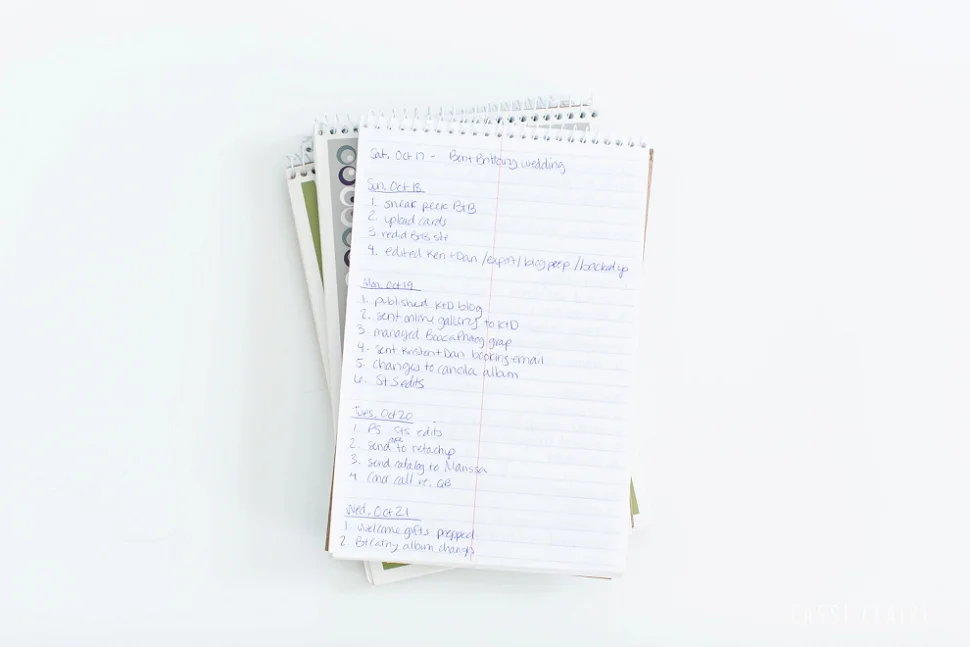 Sat, Oct 17 - Ben + Brittany wedding
Sun, Oct 18
1. sneak peek B+B
2. upload cards
3. redid B+B
4. edited Ken + Dan / export / blog prep / backed up
Mon, Oct 19
1. published K+D blog
2. sent online gallery to K+D
3. managed group
4. sent Kristen + Dan booking email
5. changes to album
6. S+S edits
Tues, Oct 20
1. PS S+S edits
2. send to retachup
3. send catalog to Marissa
4. Conor call re. QB
Wed, Oct 21
1. Welcome gifts prepped
2. album changes
CASSI CLAIRE